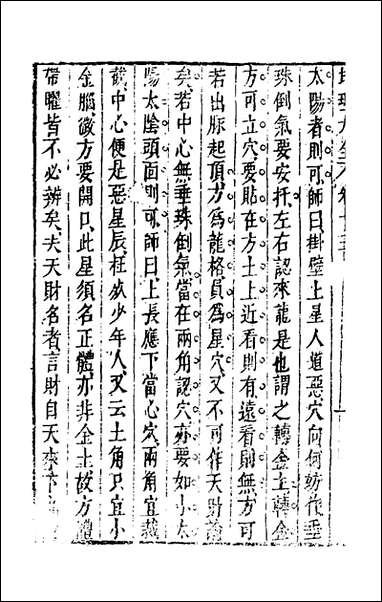 太陽者則可師曰掛壁土星人道惡穴向何妨作垂
珠倒氣要安扦左右認來龍是也謂之轉金土轉金
方可立穴要貼在方土上近看則有遠看則無方可
若出脉起頂方為龍格員為星穴又不可作天財論
矣若中心無垂珠倒氣當在兩角認穴亦要如小太
陽太陰頭面則可師曰上長應下當心穴兩角宜裁
截中心便是惡星辰枉死少年人又云土角只宜小
金腦微方要開口此星須名正體亦非金土故方體
帶曜皆不必辨矣夫天財名者言財自天來